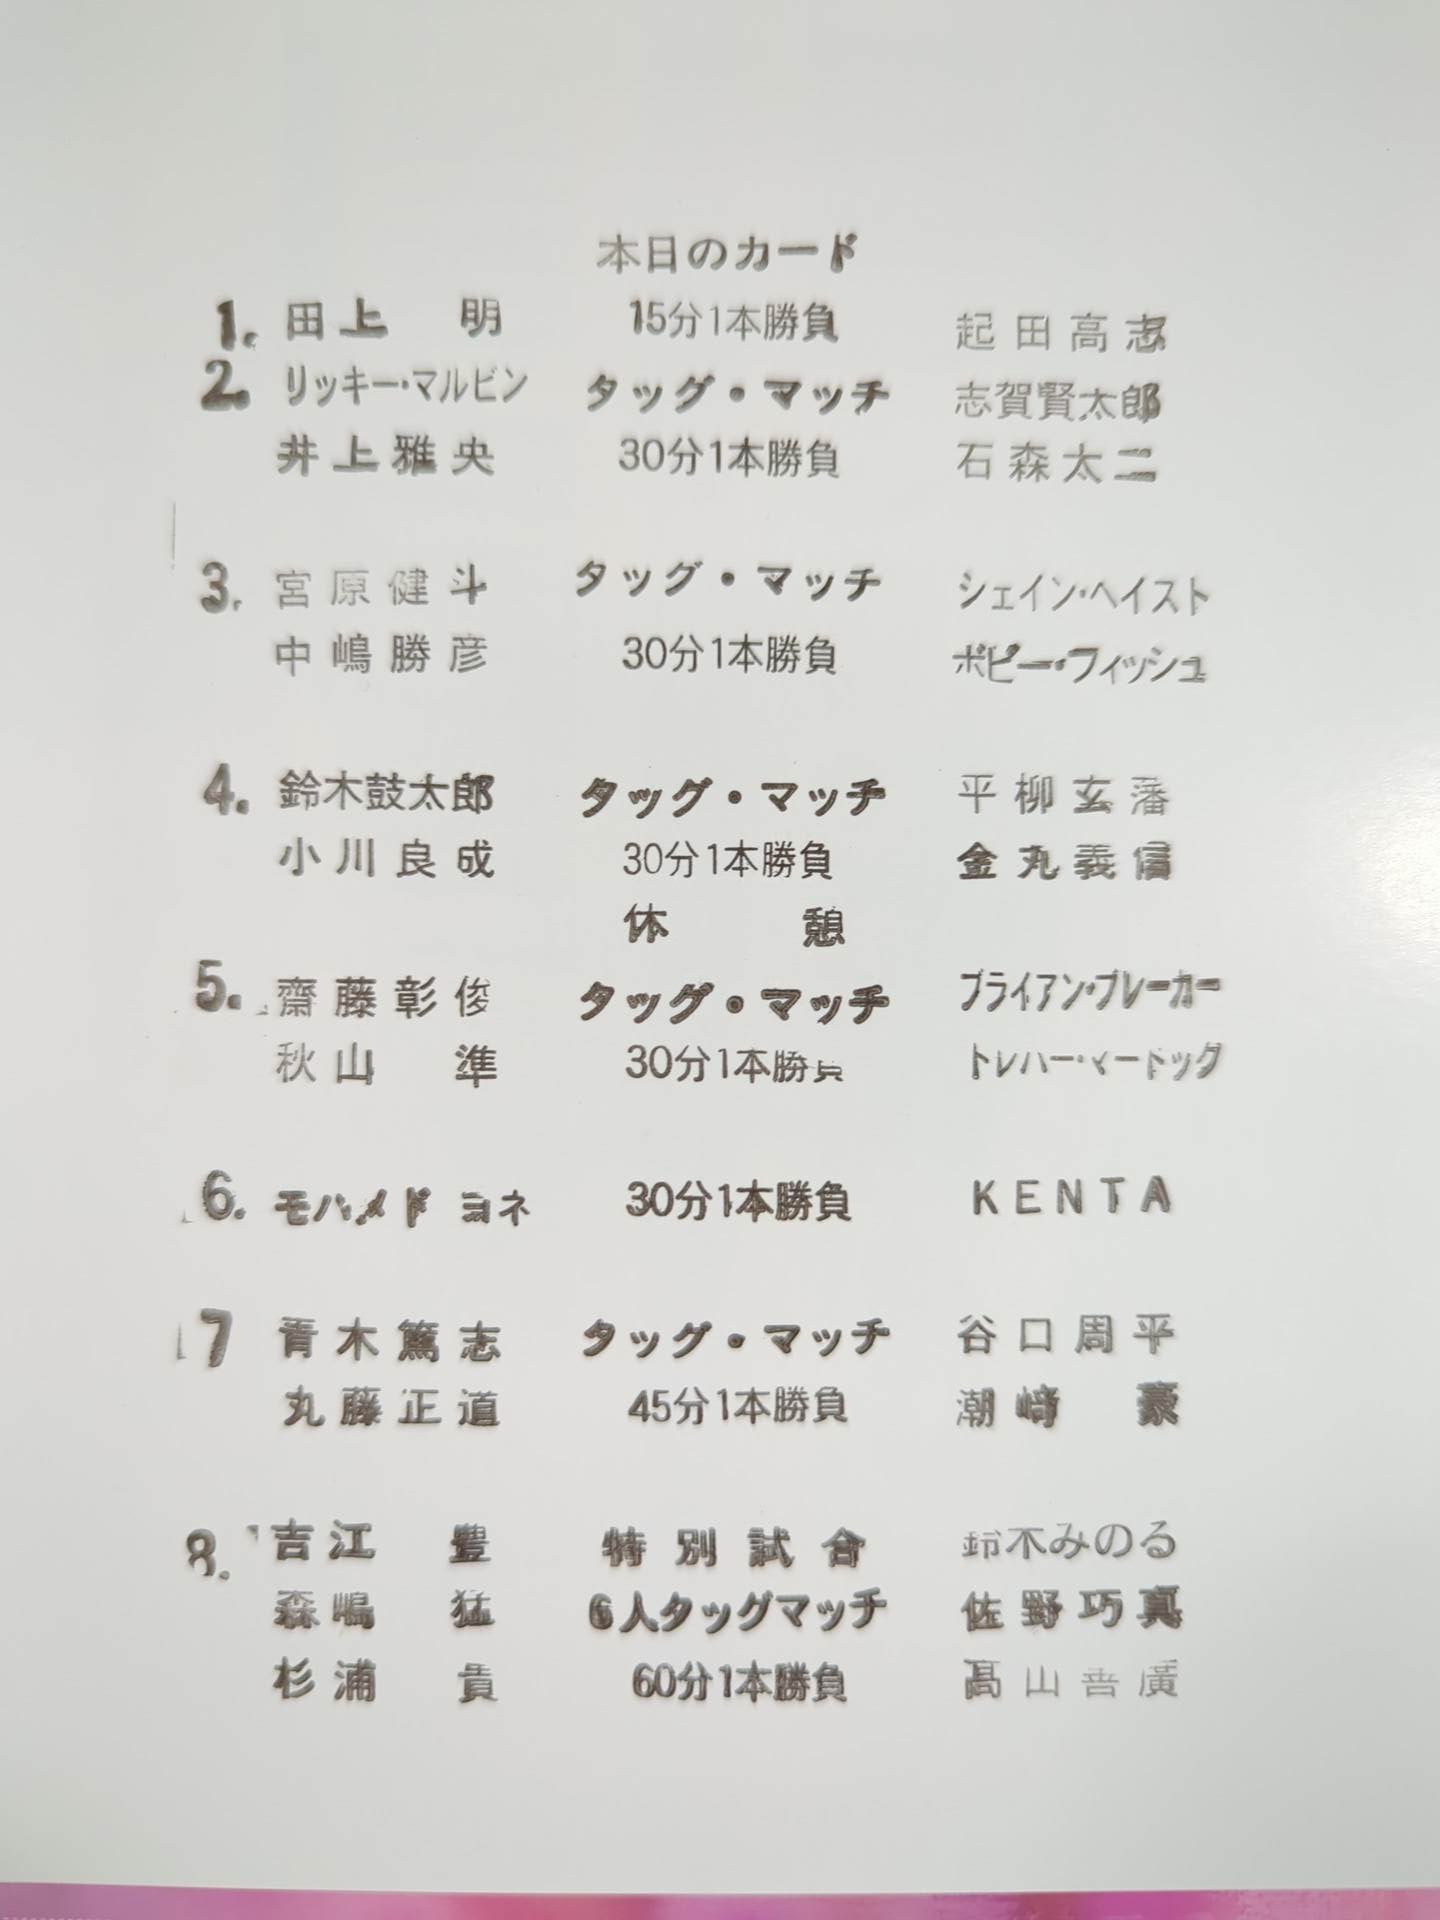 本日のカード
1. 田上 明 15分1本勝負 起田高志
2. リッキー・マルビン タッグ・マッチ 志賀賢太郎
井上雅央 30分1本勝負 石森太二
3. 宮原健斗 タッグ・マッチ シェイン・ヘイスト
中嶋勝彦 30分1本勝負 ボビー・フィッシュ
4. 鈴木鼓太郎 タッグ・マッチ 平柳玄藩
小川良成 30分1本勝負 金丸義信
休 憩
5. 齋藤彰俊 タッグ・マッチ ブライアン・ブレーカー
秋山 準 30分1本勝負 トレバー・マードッグ
6. モハメド ヨネ 30分1本勝負 KENTA
7 青木篤志 タッグ・マッチ 谷口周平
丸藤正道 45分1本勝負 潮﨑 豪
8. 吉江 豊 特別試合 鈴木みのる
森嶋 猛 6人タッグマッチ 佐野巧真
杉浦 貴 60分1本勝負 髙山善廣